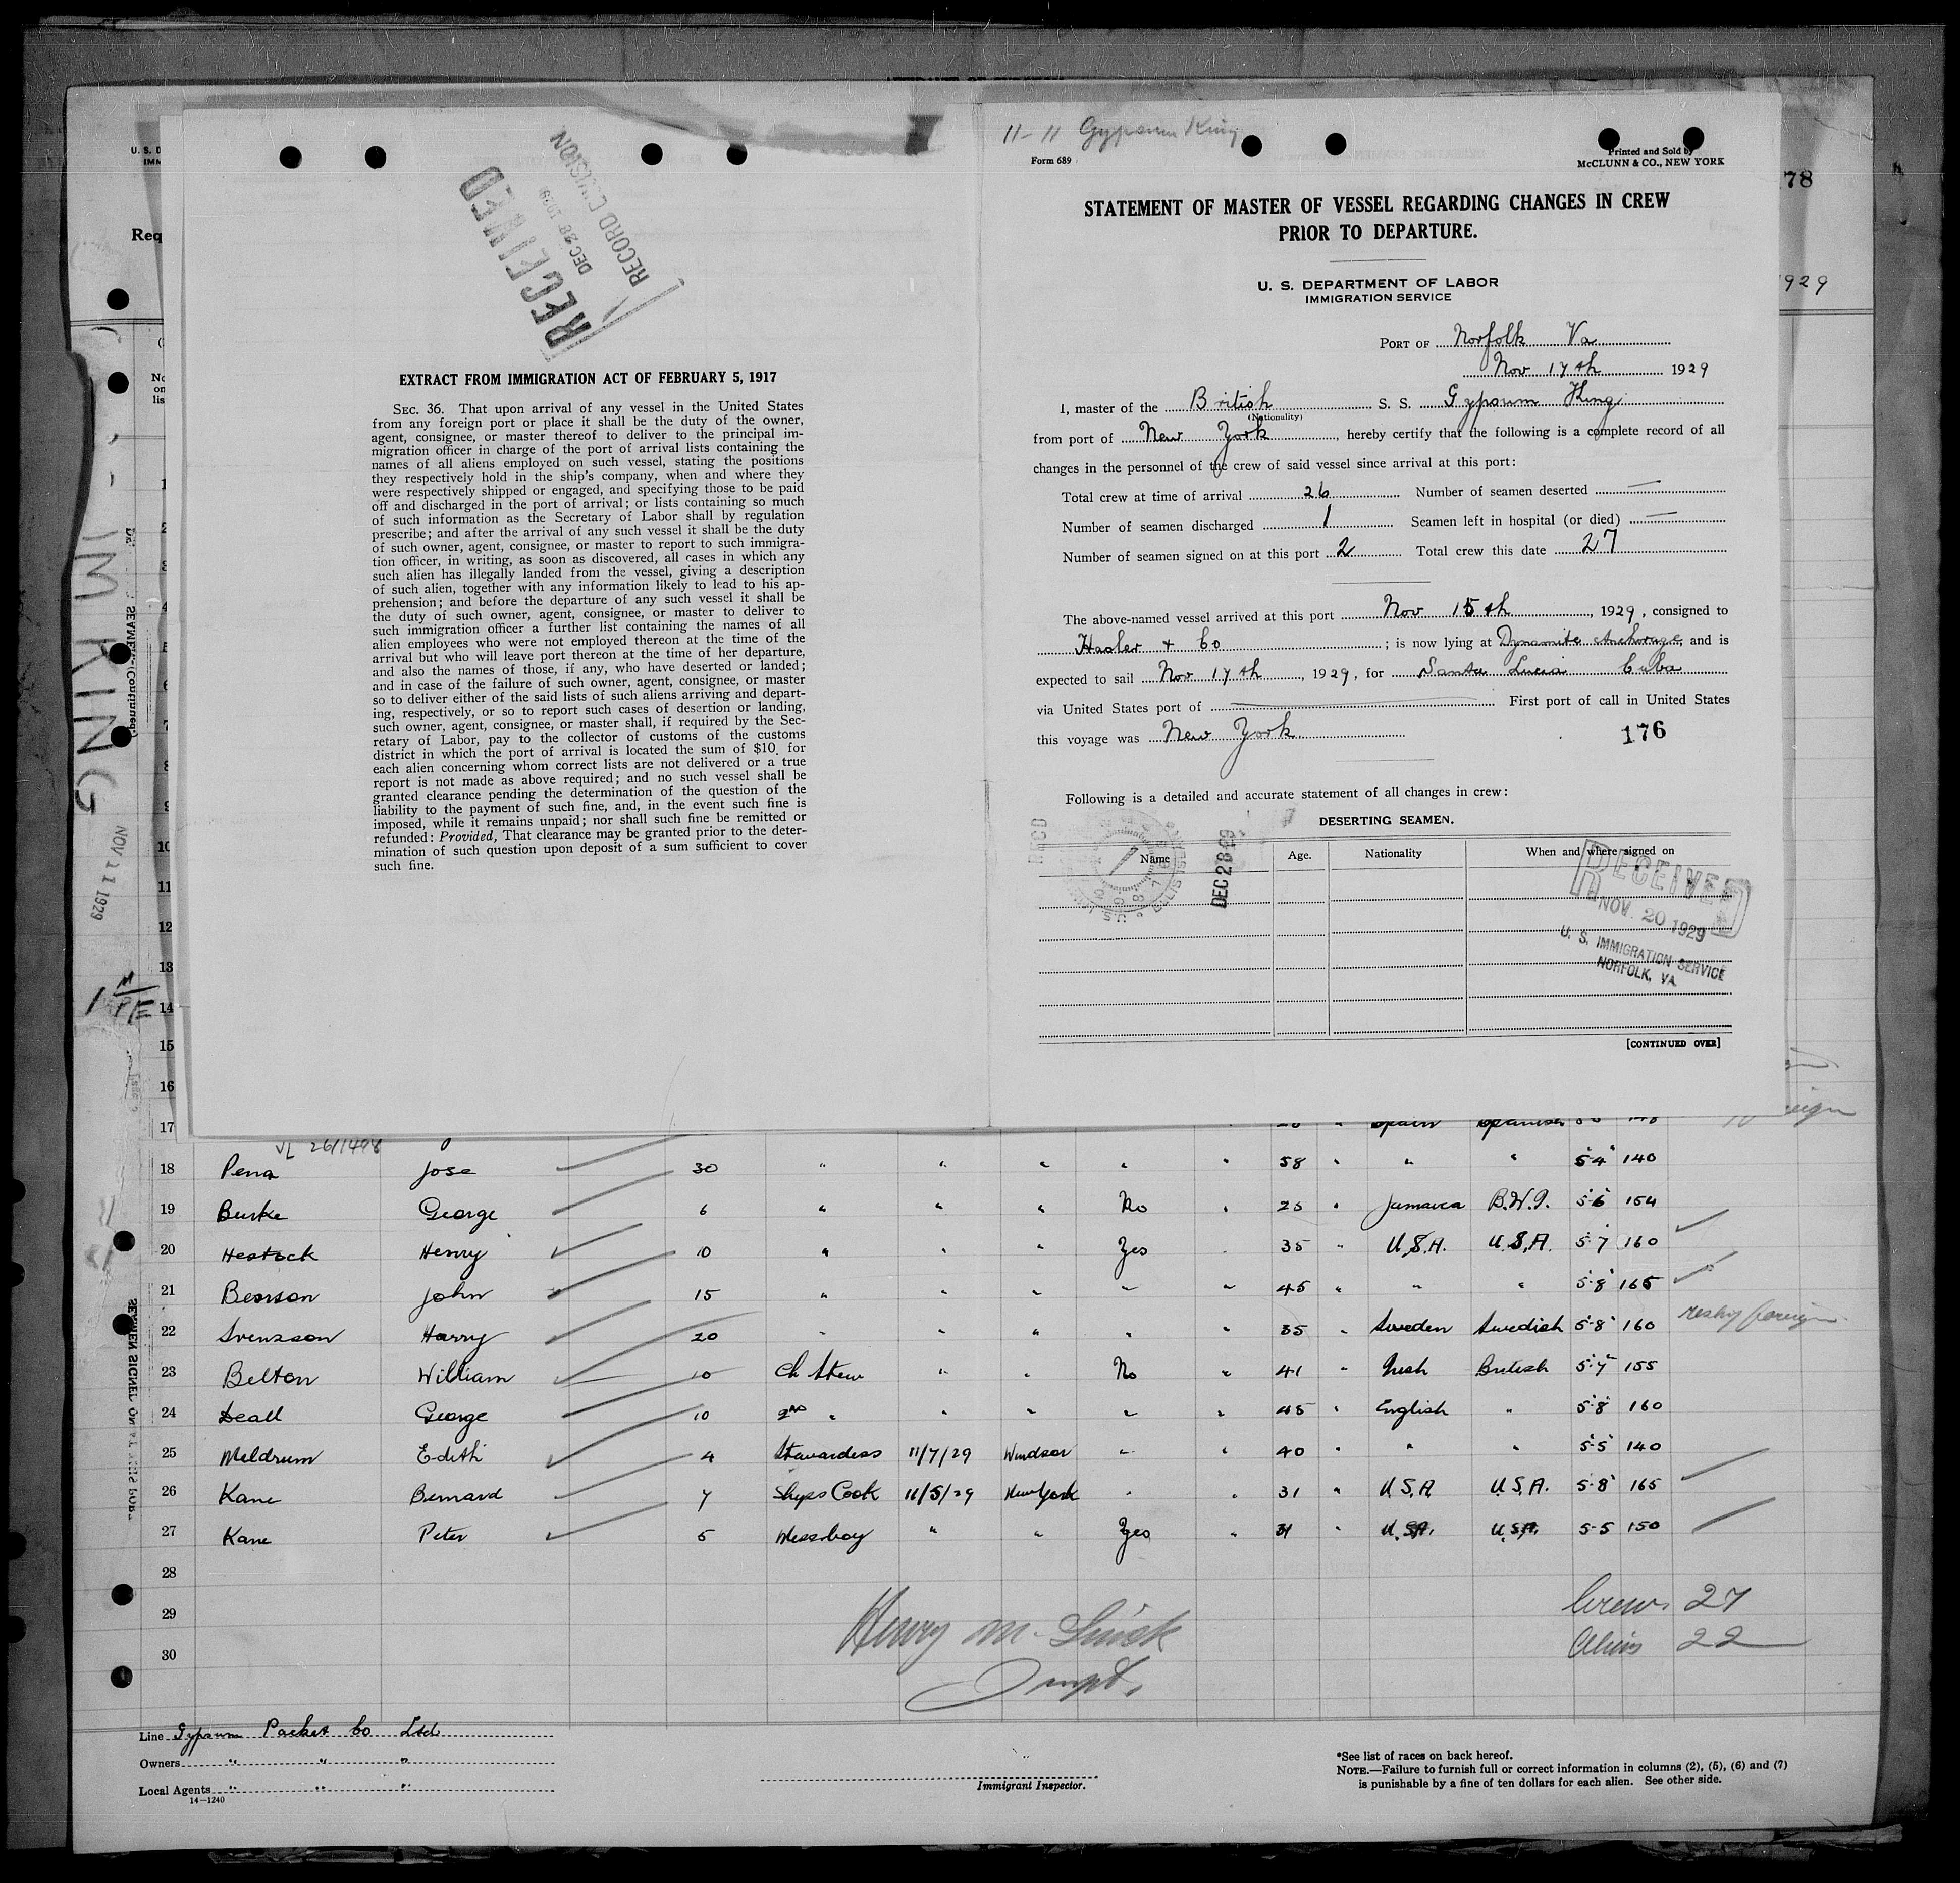 RECEIVED
DEC 28 1929
RECORD DIVISION
EXTRACT FROM IMMIGRATION ACT OF FEBRUARY 5, 1917
SEC. 36. That upon arrival of any vessel in the United States
from any foreign port or place it shall be the duty of the owner,
agent, consignee, or master thereof to deliver to the principal im-
migration officer in charge of the port of arrival lists containing the
names of all aliens employed on such vessel, stating the positions
they respectively hold in the ship's company, when and where they
were respectively shipped or engaged, and specifying those to be paid
off and discharged in the port of arrival; or lists containing so much
of such information as the Secretary of Labor shall by regulation
prescribe; and after the arrival of any such vessel it shall be the duty
of such owner, agent, consignee, or master to report to such immigra-
tion officer, in writing, as soon as discovered, all cases in which any
such alien has illegally landed from the vessel, giving a description
of such alien, together with any information likely to lead to his ap-
prehension; and before the departure of any such vessel it shall be
the duty of such owner, agent, consignee, or master to deliver to
such immigration officer a further list containing the names of all
alien employees who were not employed thereon at the time of the
arrival but who will leave port thereon at the time of her departure,
and also the names of those, if any, who have deserted or landed;
and in case of the failure of such owner, agent, consignee, or master
so to deliver either of the said lists of such aliens arriving and depart-
ing, respectively, or so to report such cases of desertion or landing,
such owner, agent, consignee, or master shall, if required by the Sec-
retary of Labor, pay to the collector of customs of the customs
district in which the port of arrival is located the sum of $10 for
each alien concerning whom correct lists are not delivered or a true
report is not made as above required; and no such vessel shall be
granted clearance pending the determination of the question of the
liability to the payment of such fine, and, in the event such fine is
imposed, while it remains unpaid; nor shall such fine be remitted or
refunded: Provided, That clearance may be granted prior to the deter-
mination of such question upon deposit of a sum sufficient to cover
such fine.
11-11 Gypsum King
Form 689
Printed and Sold by
McCLUNN & CO., NEW YORK
STATEMENT OF MASTER OF VESSEL REGARDING CHANGES IN CREW
PRIOR TO DEPARTURE.
U. S. DEPARTMENT OF LABOR
IMMIGRATION SERVICE
PORT OF Norfolk Va
Nov 17th 1929
I, master of the British S. S. Gypsum King
(Nationality)
from port of New York, hereby certify that the following is a complete record of all
changes in the personnel of the crew of said vessel since arrival at this port:
Total crew at time of arrival 26 Number of seamen deserted —
Number of seamen discharged 1 Seamen left in hospital (or died) —
Number of seamen signed on at this port 2 Total crew this date 27
The above-named vessel arrived at this port Nov 15th, 1929, consigned to
Hasler + Co; is now lying at Dynamite Anchorage, and is
expected to sail Nov 17th, 1929, for Santa Lucia Cuba
via United States port of — First port of call in United States
this voyage was New York
176
Following is a detailed and accurate statement of all changes in crew:
DESERTING SEAMEN.
Name Age. Nationality When and where signed on
DEC 28 29
RECEIVED
NOV. 20 1929
U. S. IMMIGRATION SERVICE
NORFOLK, VA
[CONTINUED OVER]
78
929
IM KING
NOV 11 1929
11
12
13
14
15
16
17 Spain Spanish
18 Pena Jose 30 " " " " " 58 " " " 5-4 140
19 Burke George 6 " " " No " 25 " Jamaica B.W.I. 5-6 154
20 Hestock Henry 10 " " " Yes 35 " U.S.A. U.S.A. 5-7 160
21 Benson John 15 " " " " " 45 " " " 5-8 165
22 Svensson Harry 20 " " " " " 35 " Sweden Swedish 5-8 160 reship foreign
23 Belton William 10 Ch Stew " " No " 41 " Irish British 5-7 155
24 Deall George 10 2nd " " " " " 45 " English " 5-8 160
25 Meldrum Edith 4 Stewardess 11/7/29 Windsor " " 40 " " " 5-5 140
26 Kane Bernard 7 Ships Cook 11/5/29 New York " " 31 " U.S.A. U.S.A. 5-8 165
27 Kane Peter 5 Messboy " " Yes " 31 " U.S.A. U.S.A. 5-5 150
28
29
30
Crew 27
Aliens 22
Henry M.
Line Gypsum Packet Co Ltd
Owners " " "
Local Agents " " "
14—1240
Immigrant Inspector.
*See list of races on back hereof.
NOTE.—Failure to furnish full or correct information in columns (2), (5), (6) and (7)
is punishable by a fine of ten dollars for each alien. See other side.